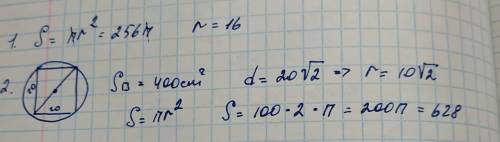 1. S = πr² = 256π r = 16
2. 20 20 S□ = 400 cm² d = 20√2 => r = 10√2
S = πr² S = 100 · 2 · π = 200π = 628